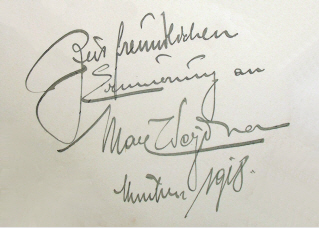 Zur freundlichen
Erinnerung an
Max
München 1918.